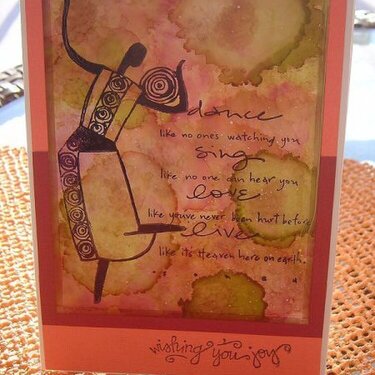 dance
like no ones watching you
sing
like no one can hear you
love
like you've never been hurt before
live
like its Heaven here on earth.
wishing you joy